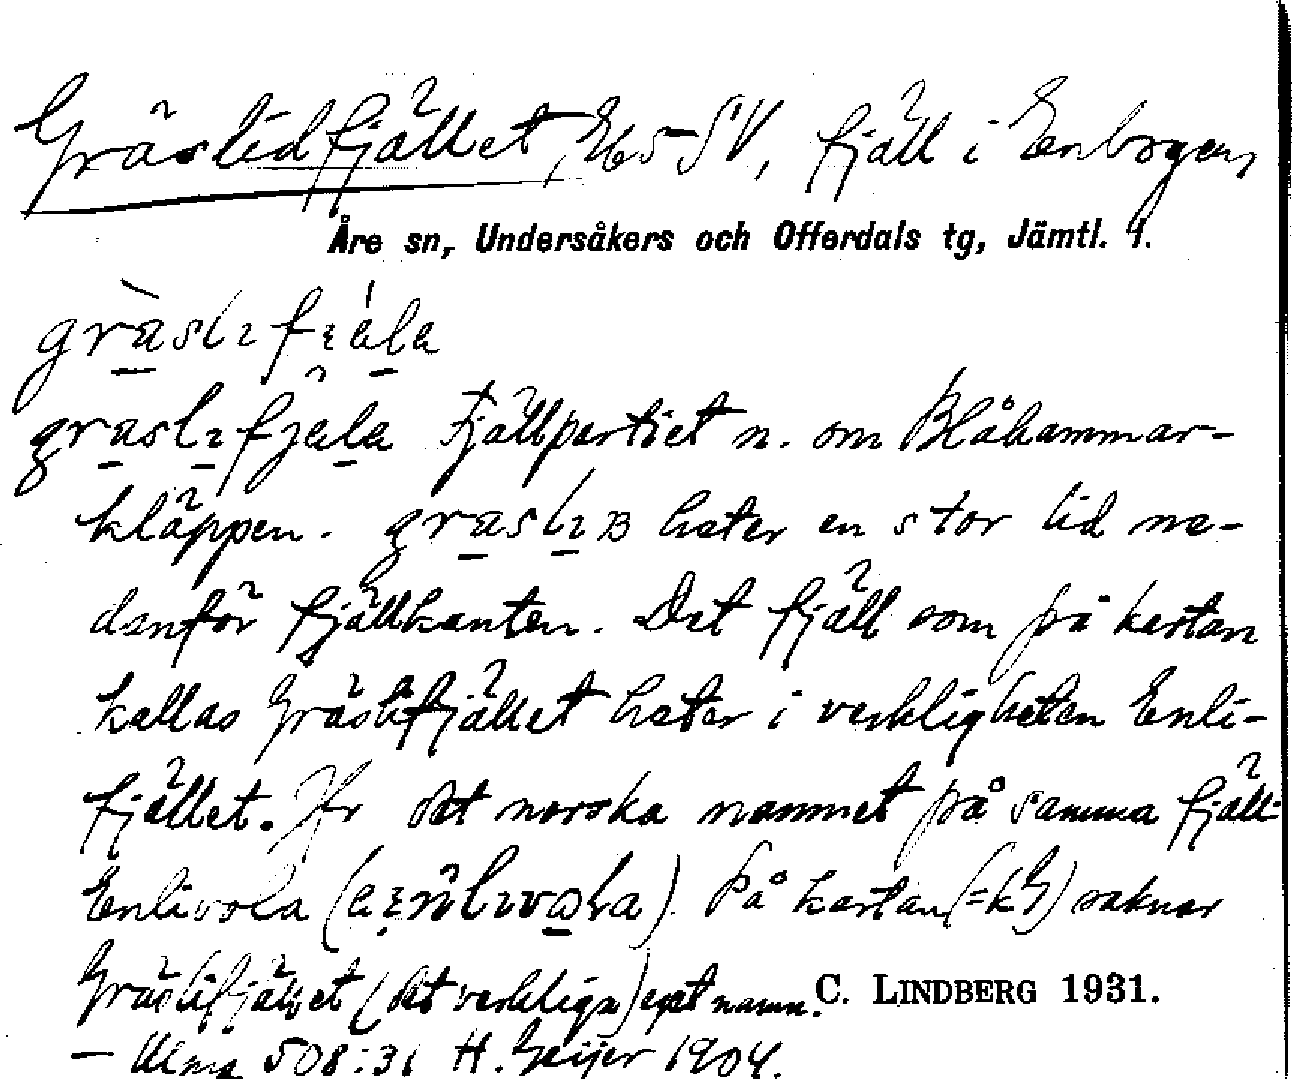 Gräslidfjället, Eb5-SV, fjäll i Enbogen,
Åre sn, Undersåkers och Offerdals tg, Jämtl. l.
Fjällpartiet n. om Blåhammar-
kläppen. heter en stor lid ne-
danför fjällkanten. Det fjäll som på kartan
kallas Gräslifjället heter i verkligheten Enli-
fjället. Jfr det norska namnet på samma fjäll:
Enlivola På kartan (=kG) saknar
Gräslifjället (det verkliga) eget namn. C. LINDBERG 1931.
— Ulma 508:31 H. Geijer 1904.